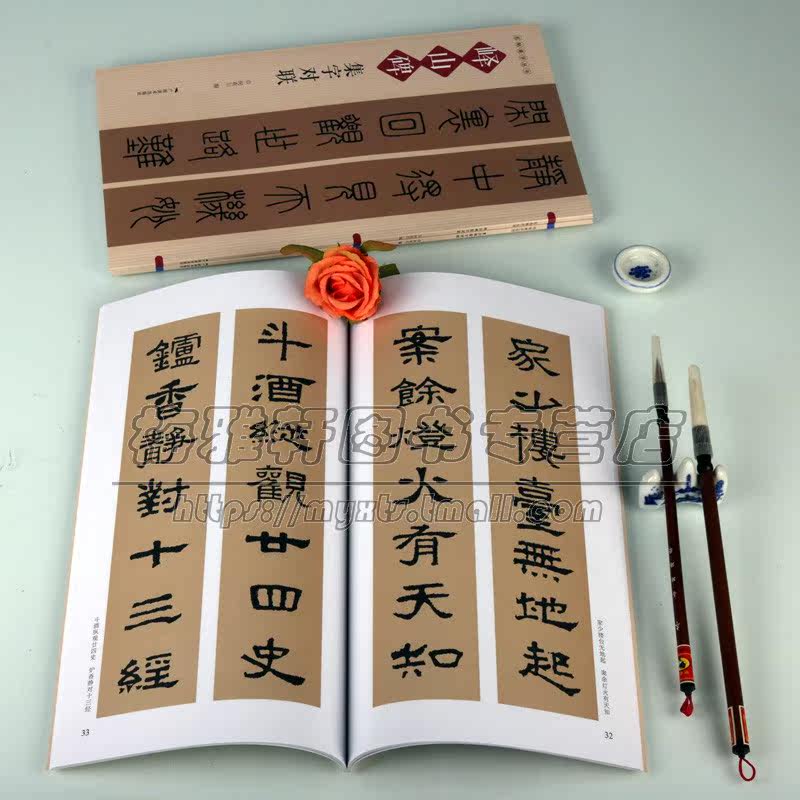 峄山碑
集字对联
靜中得見天機妙
閑裏回觀世路難
家少樓臺無地起
案餘燈火有天知
家少楼台无地起 案余灯火有天知
32
斗酒縱觀廿四史
鑪香靜對十三經
斗酒纵观廿四史 炉香静对十三经
33
雅轩图书专营店
https://myxts.tmall.com